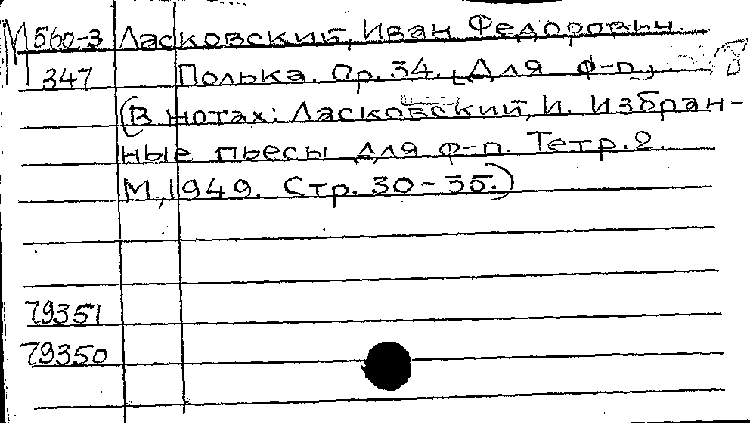 М 560-3 Ласковский, Иван Федорович.
347 Полька. Ор. 34. (Для ф-п.)
(В нотах: Ласковский, И. Избран-
ные пьесы для ф-п. Тетр. 2.
М., 1949. Стр. 30-35.)
79351
79350